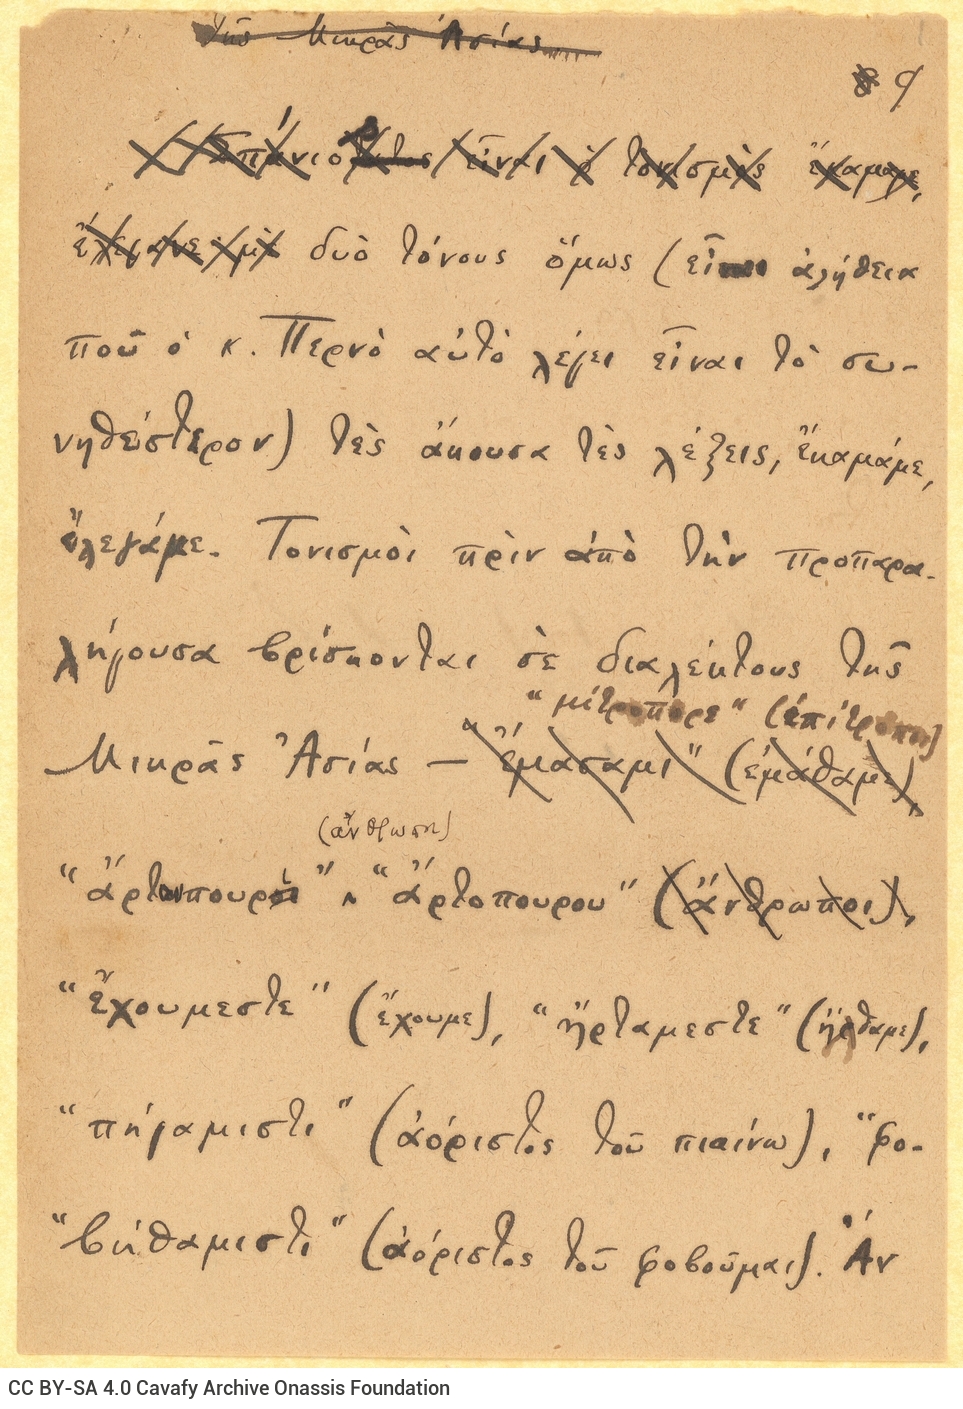 τῆς Μικρᾶς Ἀσίας
8 9
Σπάνιος εἶναι ὁ τονισμὸς ἔκαμαμε,
ἐλέγαμε μὲ δυὸ τόνους ὅμως (εἶναι ἀλήθεια
ποῦ ὁ κ. Περνὸ αὐτὸ λέγει εἶναι τὸ συ-
νηθέστερον) τὲς ἄκουσα τὲς λέξεις, ἔκαμάμε,
ἔλεγάμε. Τονισμοὶ πρὶν ἀπὸ τὴν προπαρα-
λήγουσα βρίσκονται σὲ διαλέκτους τῆς
"μίτροπορε" (ἐπίτροποι)
Μικρᾶς Ἀσίας — "ἔμασαμι" (ἐμάθαμε),
(ἄνθρωποι)
"ἄρτουπουροι" ἢ "ἄρτοπουρου" (ἄνθρωποι),
"ἔχουμεστε" (ἔχουμε), "ἤρταμεστε" (ἤρθαμε),
"πήγαμιστι" (ἀόριστος τοῦ πιαίνω), "φο-
"βήθαμιστι" (ἀόριστος τοῦ φοβοῦμαι). Ἂν
CC BY-SA 4.0 Cavafy Archive Onassis Foundation